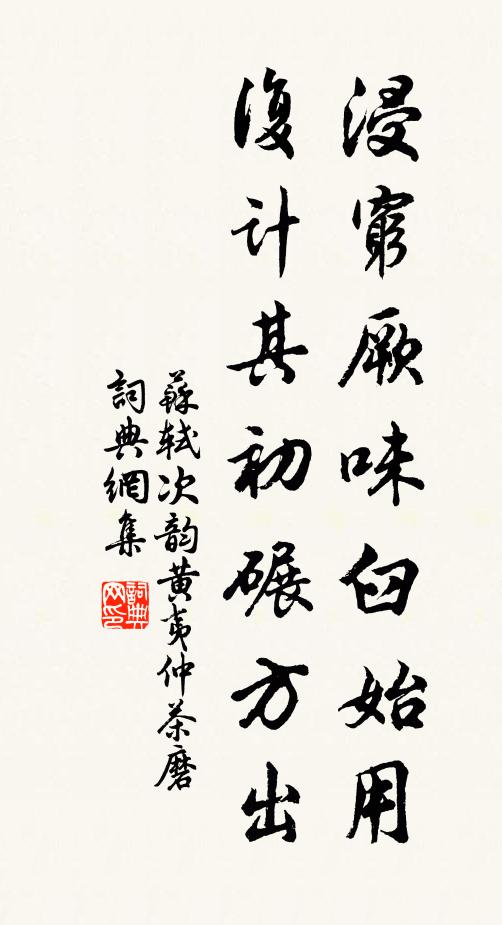 浸窮厥味臼始用
復計其初碾方出
蘇軾次韵黄夷仲茶磨
詞典網集
詞典网印